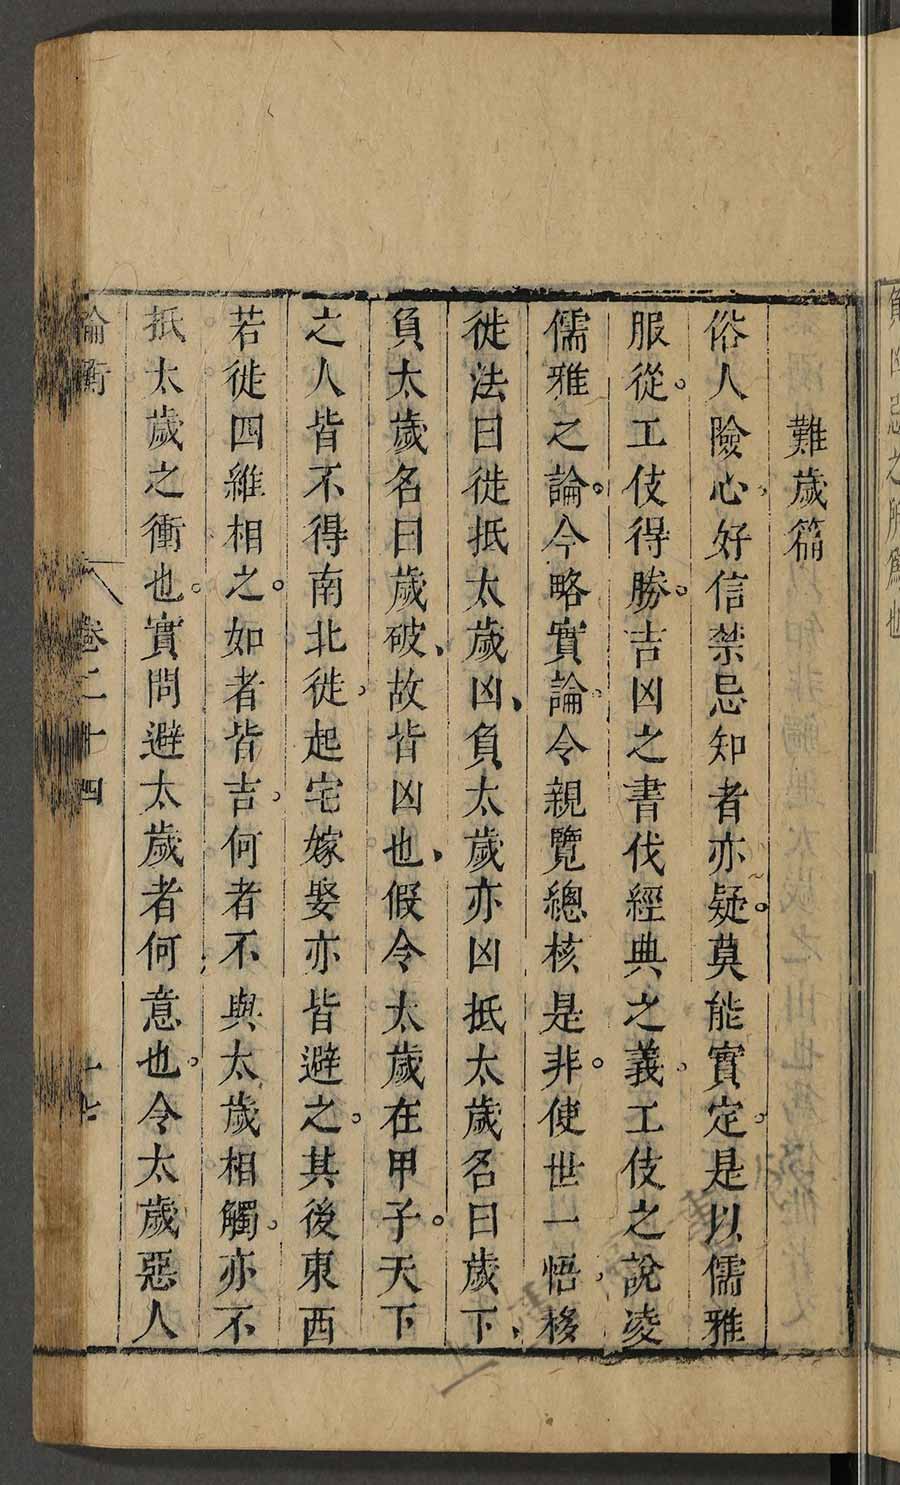 難歲篇
俗人險心好信禁忌知者亦疑。莫能實定。是以儒雅
服從。工伎得勝。吉凶之書伐經典之義。工伎之說凌
儒雅之論。今略實論。令親覽總核是非。使世一悟。移
徙法曰徙抵太歲凶、負太歲亦凶抵太歲名曰歲下、
負太歲名曰歲破、故皆凶也、假令太歲在甲子。天下
之人皆不得南北徙。起宅嫁娶亦皆避之。其後東西
若徙四維相之。如者皆吉。何者不與太歲相觸。亦不
抵太歲之衝也。實問避太歲者何意也。令太歲惡人
論衡
卷二十四
十七